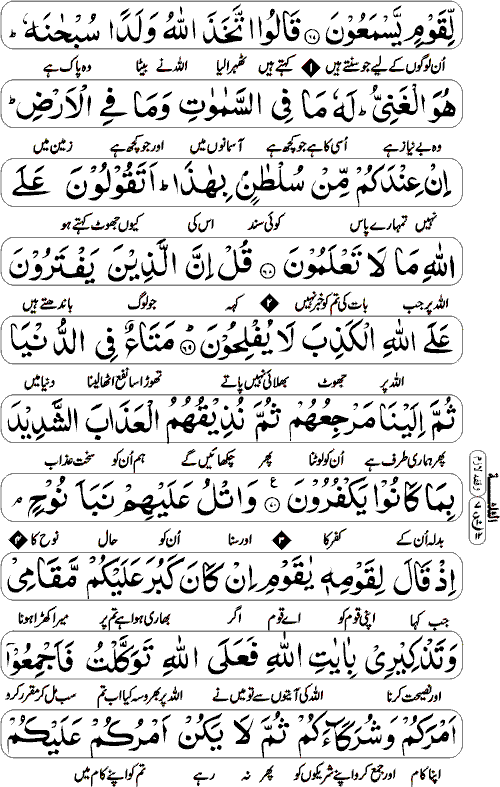 لِّقَوْمٍ يَّسْمَعُوْنَ ۝٦٧ قَالُوا اتَّخَذَ اللّٰهُ وَلَدًا سُبْحٰنَهٗ ؕ
اُن لوگوں کے لیے جو سنتے ہیں ۱ کہتے ہیں ٹھہرا لیا اللہ نے بیٹا وہ پاک ہے
هُوَ الْغَنِيُّ ؕ لَهٗ مَا فِي السَّمٰوٰتِ وَمَا فِي الْاَرْضِ ؕ
وہ بے نیاز ہے اُسی کا ہے جو کچھ ہے آسمانوں میں اور جو کچھ ہے زمین میں
اِنْ عِنْدَكُمْ مِّنْ سُلْطٰنٍۭ بِهٰذَا ؕ اَتَقُوْلُوْنَ عَلَي
نہیں تمہارے پاس کوئی سند اس کی کیوں جھوٹ کہتے ہو
اللّٰهِ مَا لَا تَعْلَمُوْنَ ۝٦٨ قُلْ اِنَّ الَّذِيْنَ يَفْتَرُوْنَ
اللہ پر جب بات کی تم کو خبر نہیں ۲ کہہ جو لوگ باندھتے ہیں
عَلَي اللّٰهِ الْكَذِبَ لَا يُفْلِحُوْنَ ۝٦٩ؕ مَتَاعٌ فِي الدُّنْيَا
اللہ پر جھوٹ بھلائی نہیں پاتے تھوڑا سا نفع اٹھا لینا دنیا میں
ثُمَّ اِلَيْنَا مَرْجِعُهُمْ ثُمَّ نُذِيْقُهُمُ الْعَذَابَ الشَّدِيْدَ
پھر ہماری طرف ہے اُن کو لوٹنا پھر چکھائیں گے ہم اُن کو سخت عذاب
بِمَا كَانُوْا يَكْفُرُوْنَ ۝٧٠ ع وَاتْلُ عَلَيْهِمْ نَبَاَ نُوْحٍ ۘ
بدلہ اُن کے کفر کا ۳ اور سنا اُن کو حال نوح کا
اِذْ قَالَ لِقَوْمِهٖ يٰقَوْمِ اِنْ كَانَ كَبُرَ عَلَيْكُمْ مَّقَامِيْ
جب کہا اپنی قوم کو اے قوم اگر بھاری ہوا ہے تم پر میرا کھڑا ہونا
وَتَذْكِيْرِيْ بِاٰيٰتِ اللّٰهِ فَعَلَي اللّٰهِ تَوَكَّلْتُ فَاَجْمِعُوْٓا
اور نصیحت کرنا اللہ کی آیتوں سے تو میں نے اللہ پر بھروسہ کیا اب تم سب مل کر مقرر کرو
اَمْرَكُمْ وَشُرَكَآءَكُمْ ثُمَّ لَا يَكُنْ اَمْرُكُمْ عَلَيْكُمْ
اپنا کام اور جمع کرو اپنے شریکوں کو پھر نہ رہے تم کو اپنے کام میں